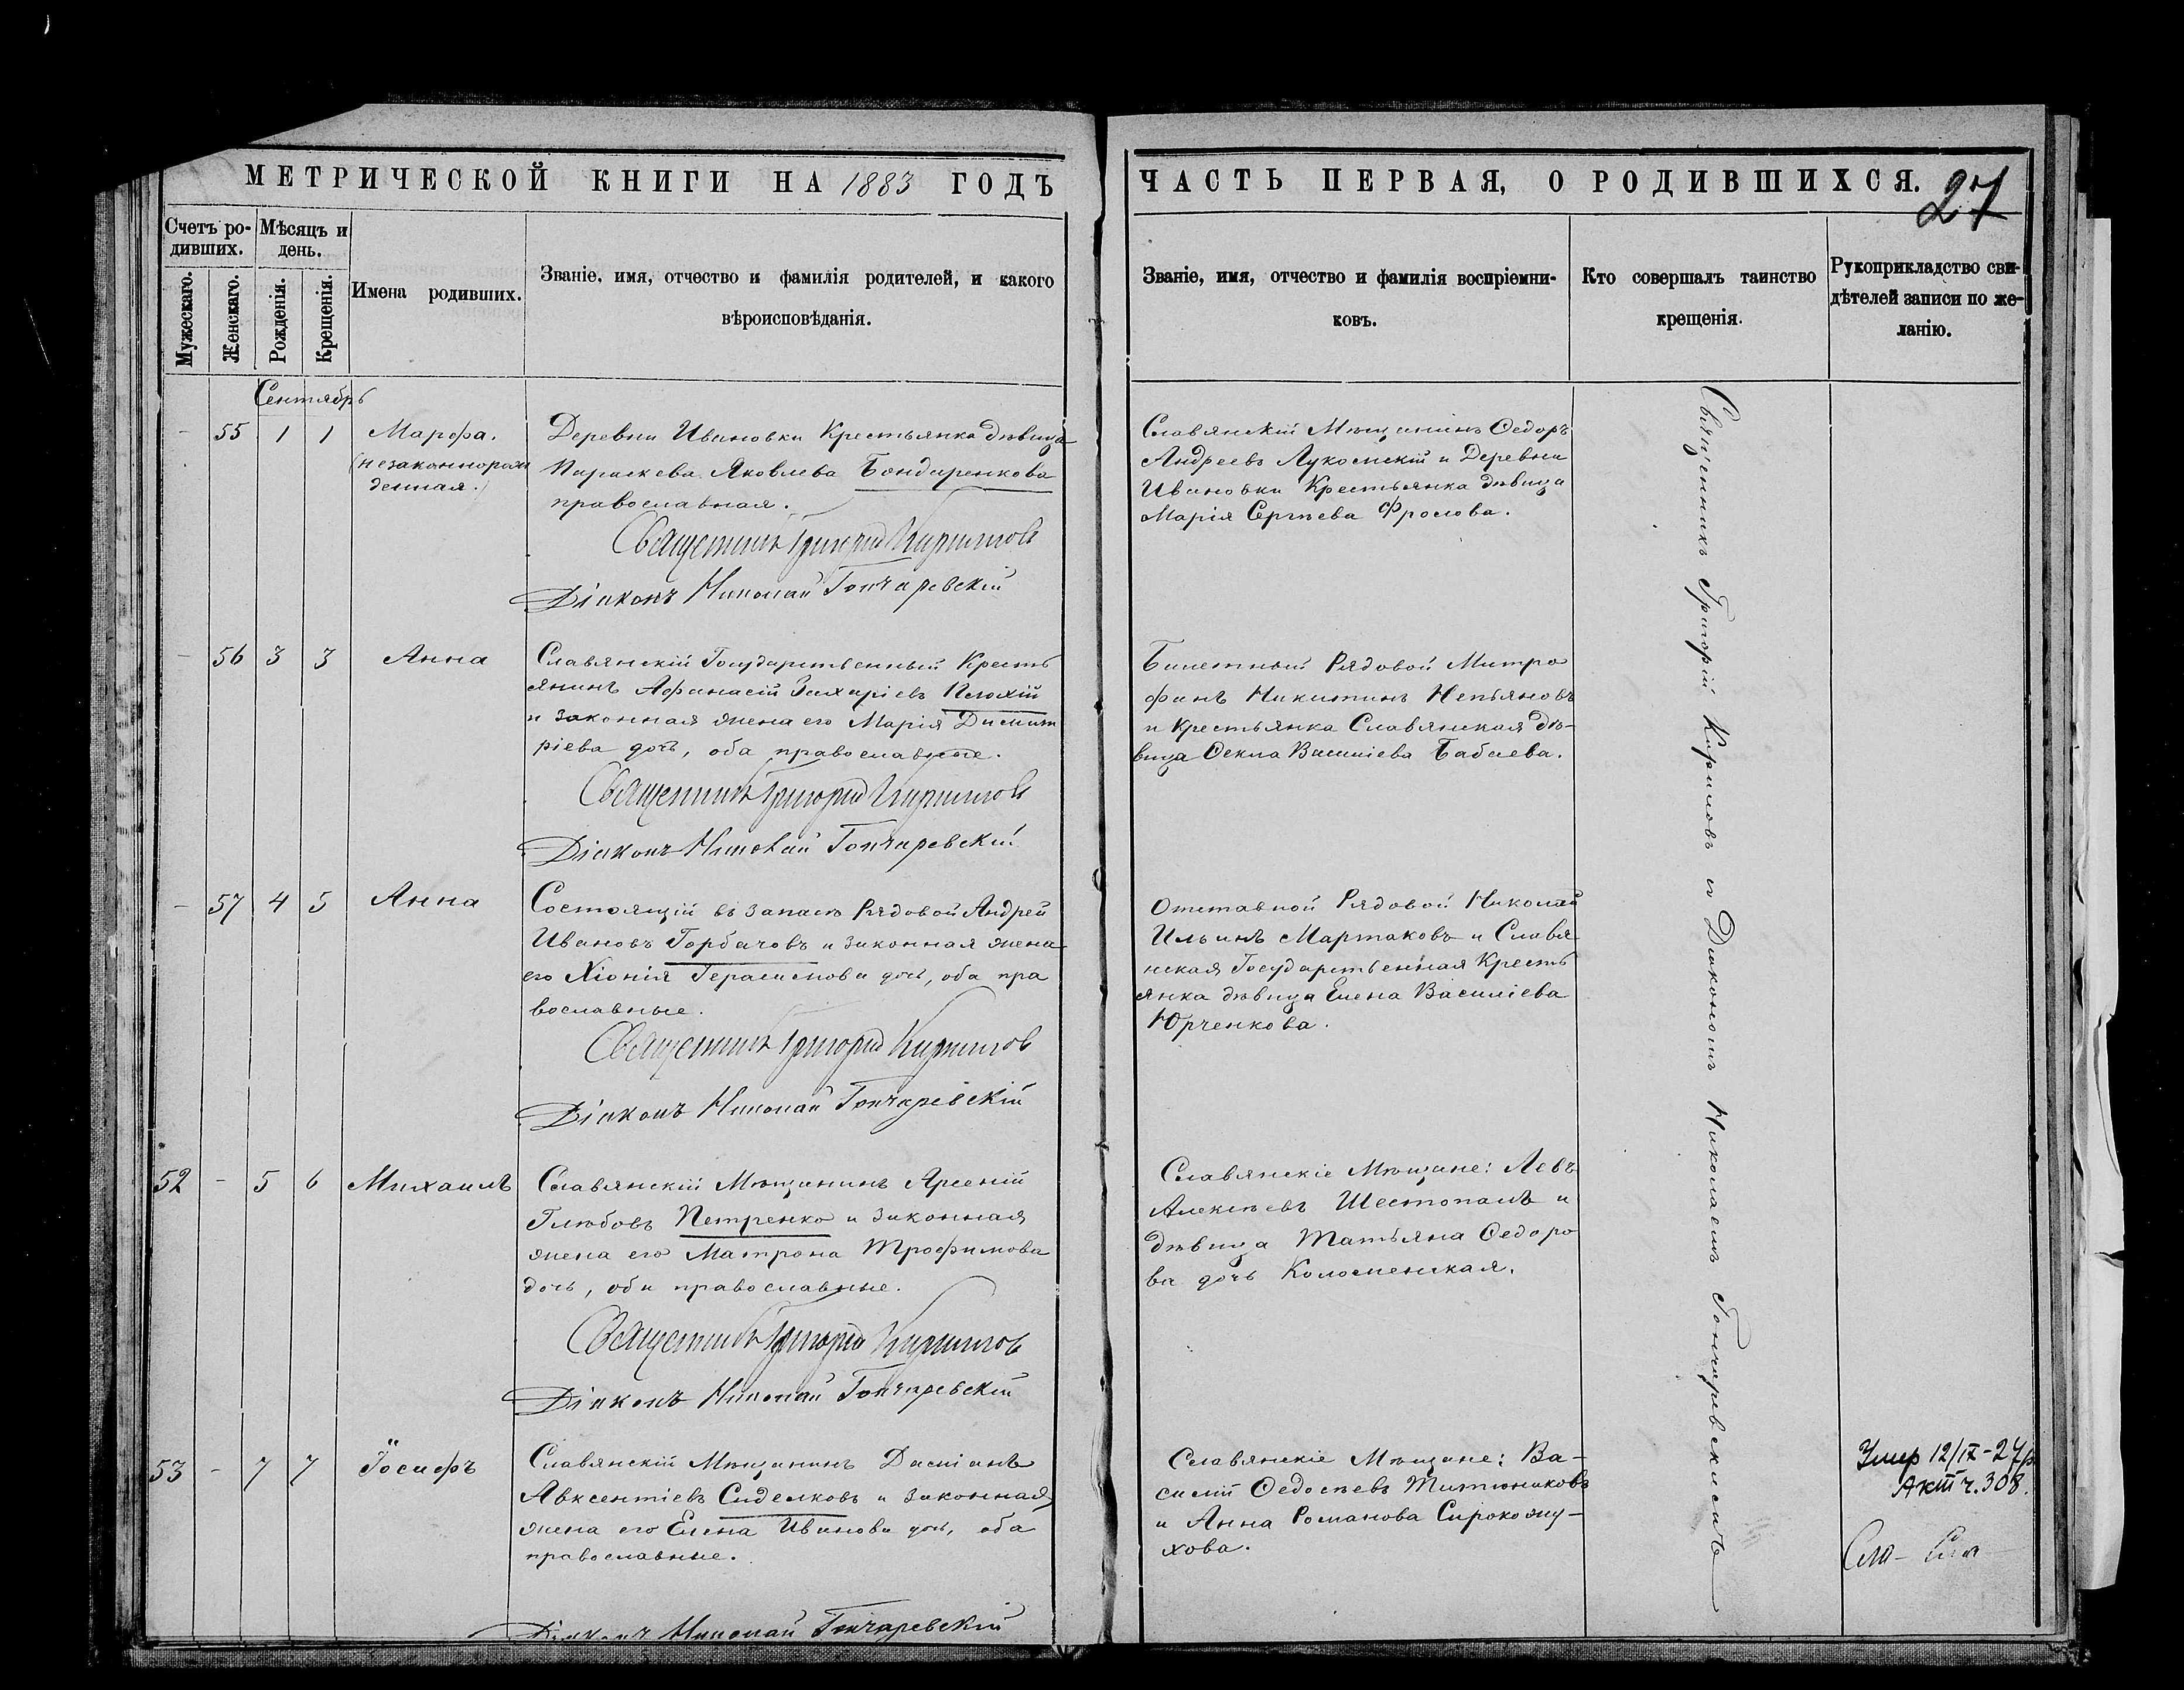 МЕТРИЧЕСКОЙ КНИГИ НА 1883 ГОДЪ
Счетъ ро-
дившихъ.
Мѣсяцъ и
день.
Мужескаго.
Женскаго.
Рожденія.
Крещенія.
Имена родившихъ.
Званіе, имя, отчество и фамилія родителей, и какого
вѣроисповѣданія.
Сентябрь
- 55 1 1 Марфа.
(незаконнорож
денная.)
Деревни Ивановки Крестьянка дѣвица
Параскева Яковлева Бондаренкова
православная.
Священникъ Григорій Кириловъ
Діаконъ Николай Гончаревскій
- 56 3 3 Анна
Славянскій Государственный Кресть
янинъ Афанасій Захаріевъ
и законная жена его Марія Димит
ріева дочь, оба православные.
Священникъ Григорій Кириловъ
Діаконъ Николай Гончаревскій
- 57 4 5 Анна
Состоящій въ запасѣ Рядовой Андрей
Ивановъ Горбачовъ и законная жена
его Хіонія Герасимова дочь, оба пра
вославные.
Священникъ Григорій Кириловъ
Діаконъ Николай Гончаревскій
52 - 5 6 Михаилъ
Славянскій Мѣщанинъ Арсеній
Глѣбовъ Петренко и законная
жена его Матрона Трофимова
дочь, оба православные.
Священникъ Григорій Кириловъ
Діаконъ Николай Гончаревскій
53 - 7 7 Іосифъ
Славянскій Мѣщанинъ Даміанъ
Авксентіевъ Сиделковъ и законная
жена его Елена Иванова дочь, оба
православные.
Діаконъ Николай Гончаревскій
ЧАСТЬ ПЕРВАЯ, О РОДИВШИХСЯ.
27
Званіе, имя, отчество и фамилія воспріемни-
ковъ.
Кто совершалъ таинство
крещенія.
Рукоприкладство сви-
дѣтелей записи по же-
ланію.
Славянскій Мѣщанинъ Ѳедоръ
Андреевъ Лукомскій и Деревни
Ивановки Крестьянка дѣвица
Марія Сергѣева Фролова.
Билетный Рядовой Митро
фанъ Никитинъ Непьяновъ
и Крестьянка Славянская дѣ-
вица Ѳекла Василіева Бабаева.
Отставной Рядовой Николай
Ильинъ Мартаковъ и Славя
нская Государственная Кресть
янка дѣвица Елена Василіева
Юрченкова.
Славянскіе Мѣщане: Левъ
Алексѣевъ Шестопалъ и
дѣвица Татьяна Ѳедоро
ва дочь Коломенская.
Славянскіе Мѣщане: Ва-
силій Ѳедосѣевъ Титюниковъ
и Анна Романова Сирокожу-
хова.
Священникъ Григорій Кириловъ съ Діакономъ Николаемъ Гончаревскимъ
Умер 12/IX-27р
Акт ч. 308.